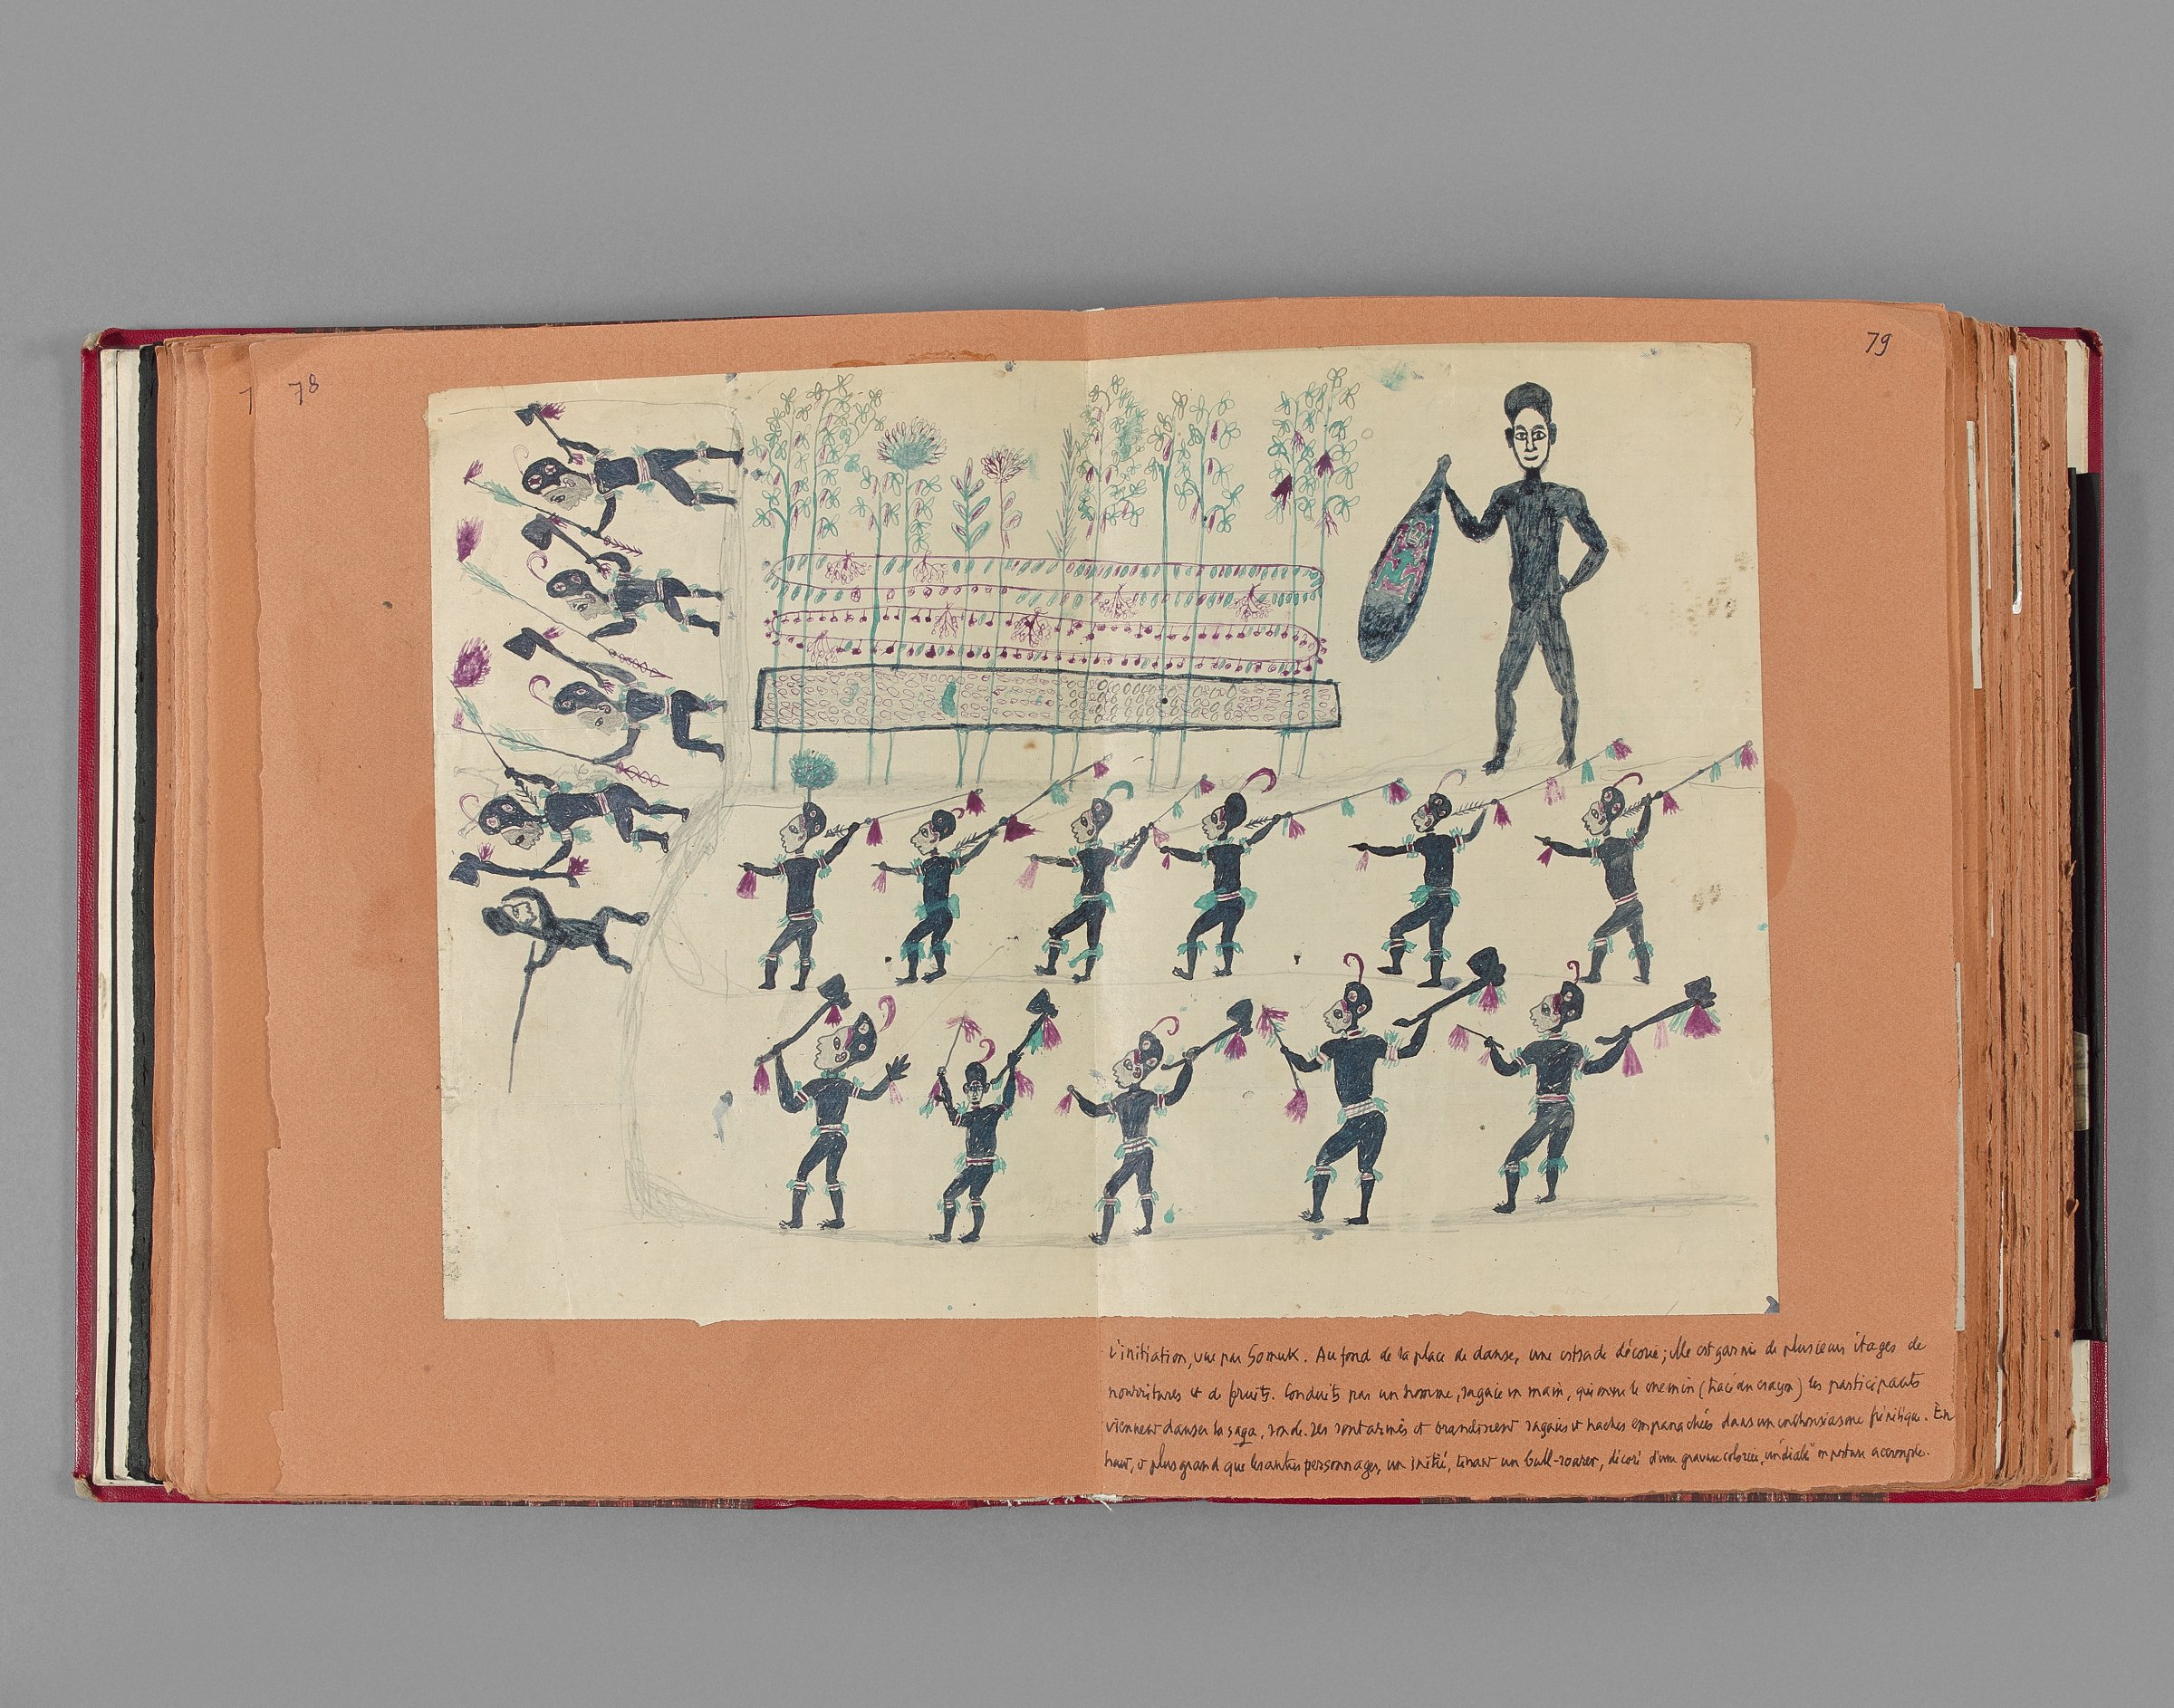 78
79
l'initiation, vue par Somuk. Au fond de la place de danse, une estrade décorée; elle est garnie de plusieurs étages de
nourritures et de fruits. Conduits par un homme, sagaie en main, qui ouvre le chemin (tracé au crayon) les participants
viennent danser la saga, ronde. Ils sont armés et brandissent sagaies et haches empanachées dans un enthousiasme frénétique. En
haut, et plus grand que les autres personnages, un initié, tenant un bull-roarer, décoré d'une gravure coloriée, un "diable" en posture accroupie.